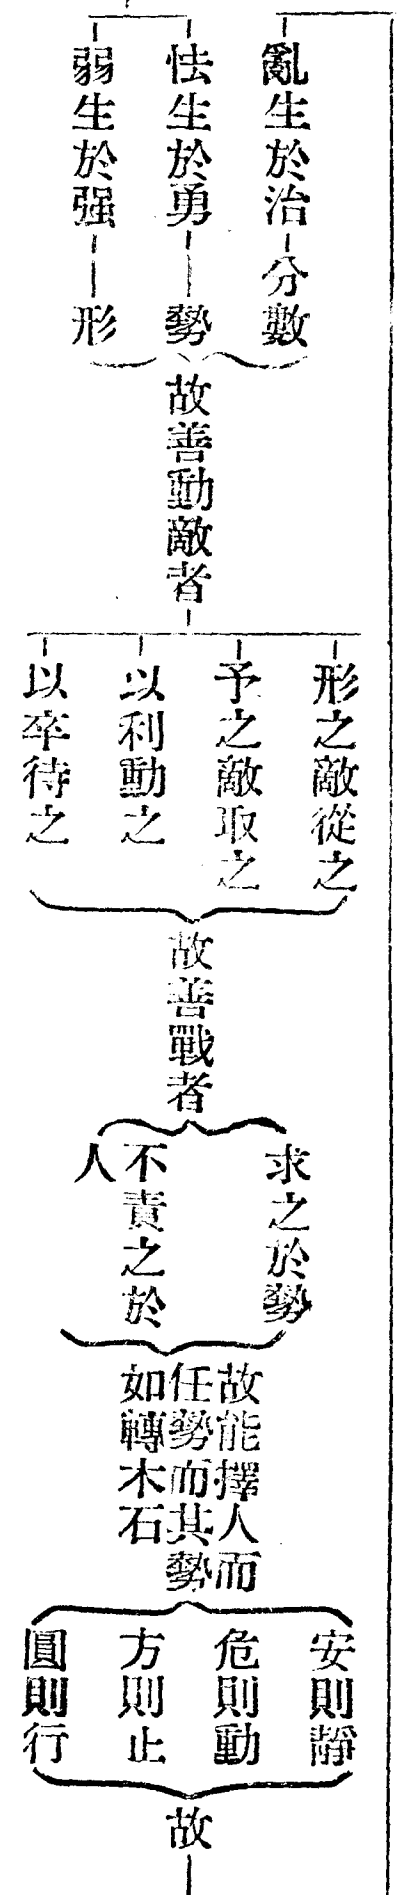 亂生於治
分數
怯生於勇
勢
弱生於强
形
故善動敵者
形之敵從之
予之敵取之
以利動之
以卒待之
故善戰者
求之於勢
不責之於
人
故能擇人而
任勢而其勢
如轉木石
安則靜
危則動
方則止
圓則行
故